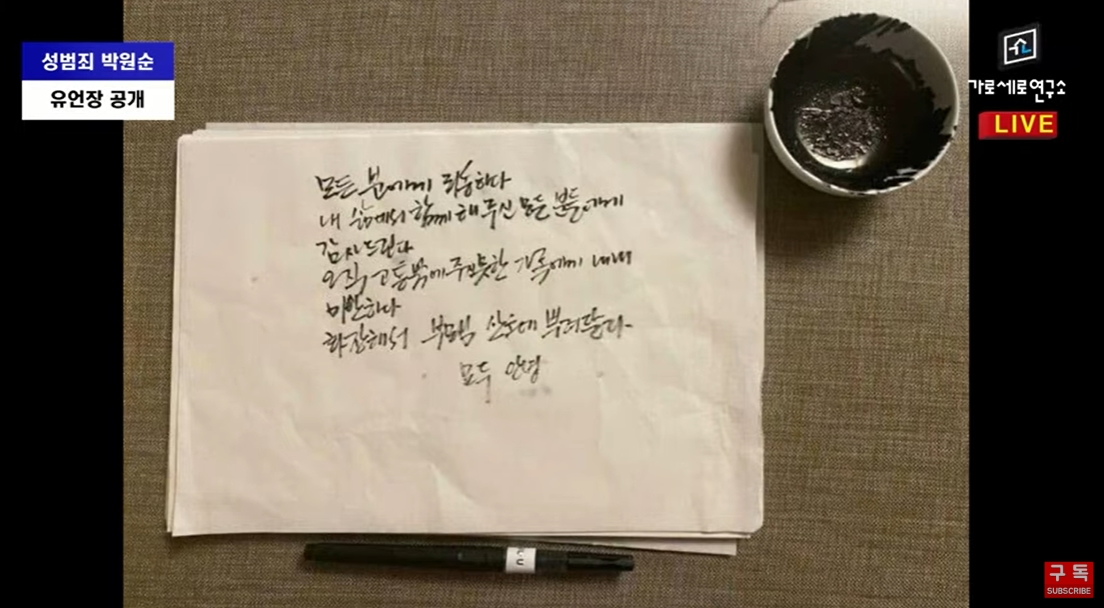 성범죄 박원순
유언장 공개
가로세로연구소
LIVE
모든 분에게 죄송하다
내 삶에서 함께 해주신 모든 분들에게
감사드린다
오직 고통밖에 주지 못한 가족에게 내내
미안하다
화장해서 부모님 산소에 뿌려달라
모두 안녕
구독
SUBSCRIBE